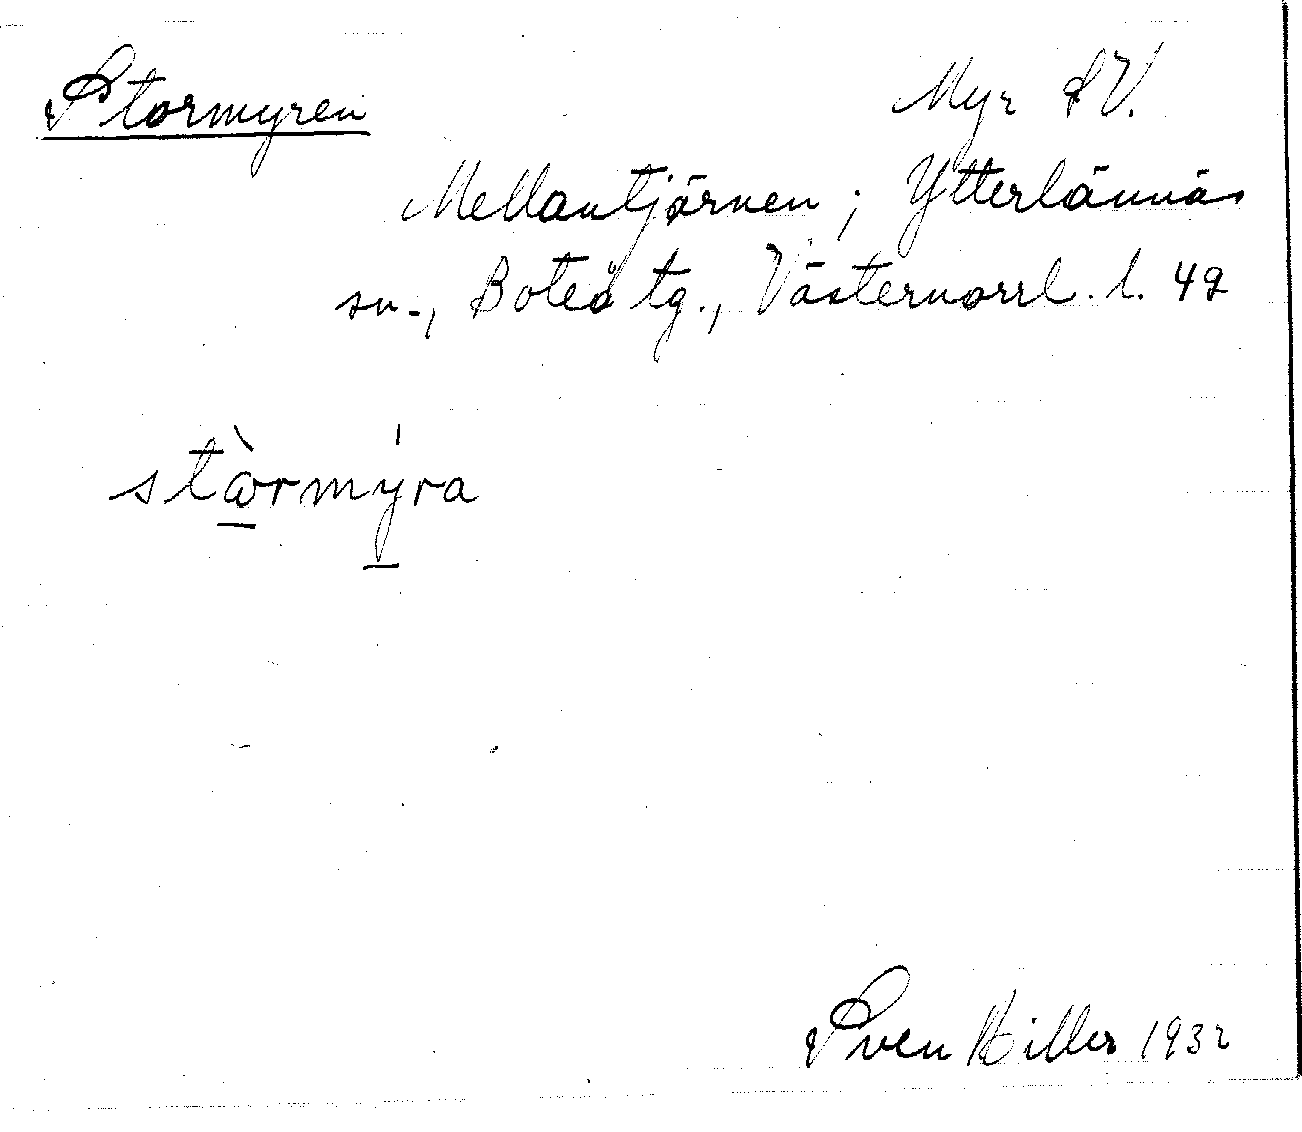 Stormyren Myr SV.
Mellantjärnen; Ytterlännäs
sn., Boteå tg., Västernorrl. l. 42
stò̱rmý̱ra
Sven Hiller 1932